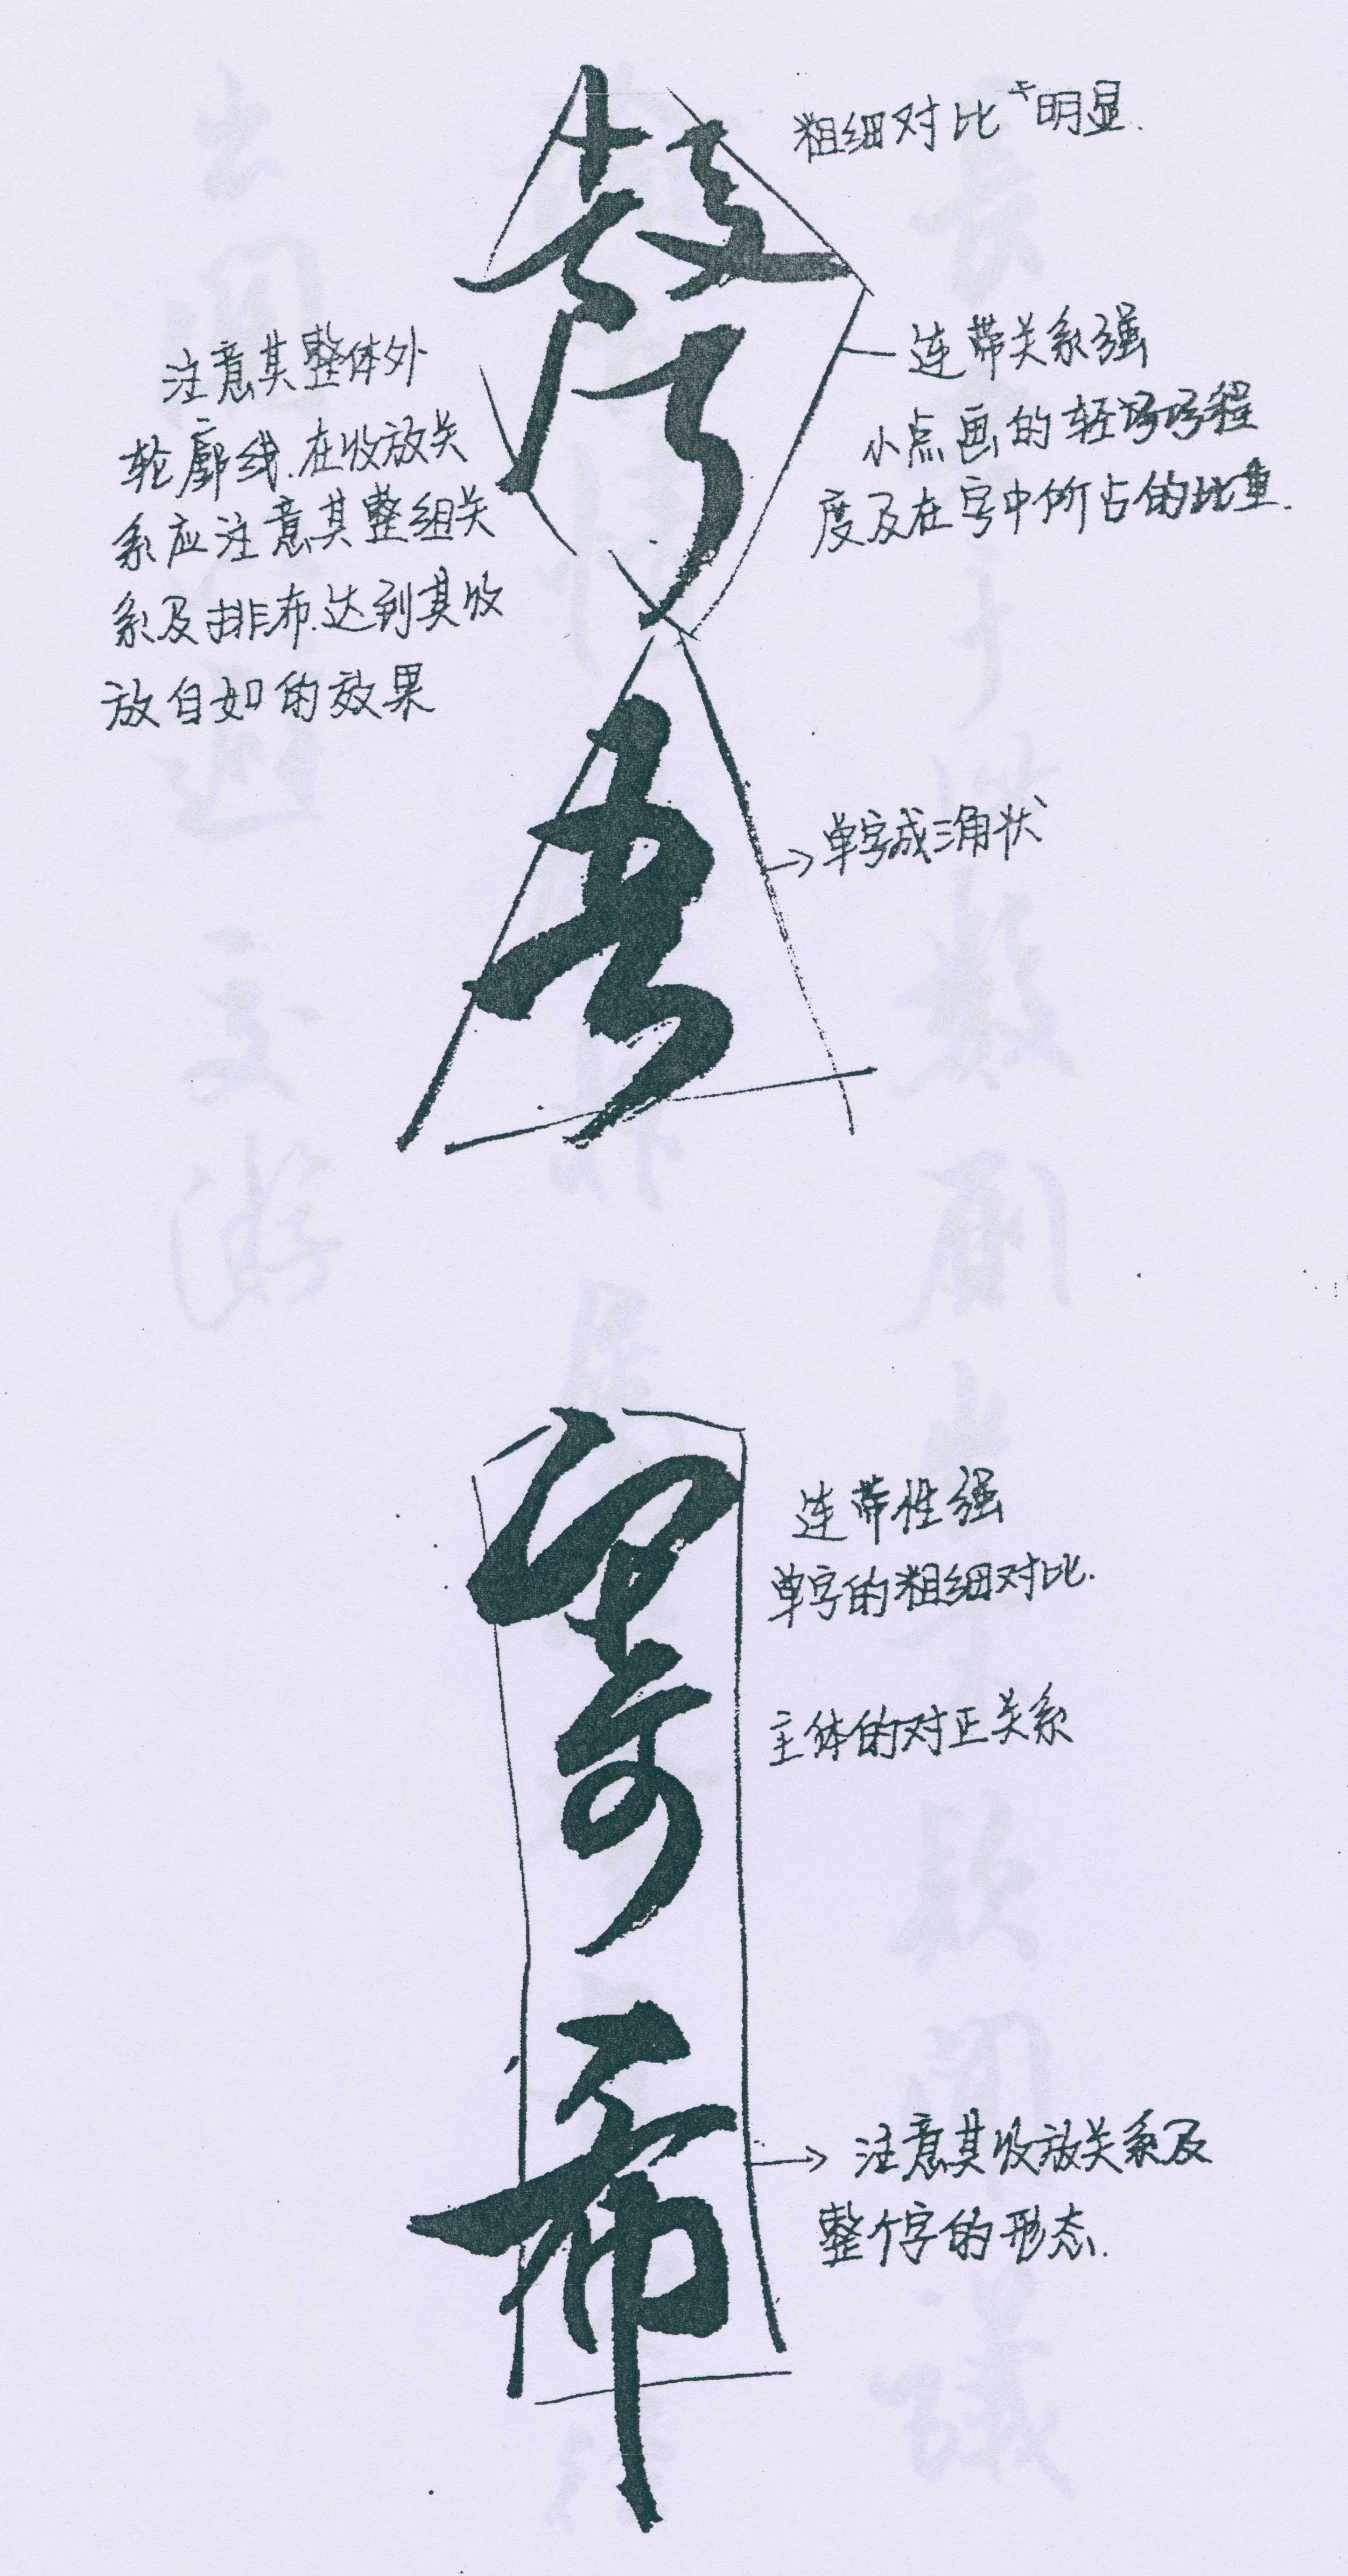 粗细对比十明显.
连带关系强
小点画的轻
程
度及在字中所占的比重.
注意其整体外
轮廓线.在收放关
系应注意其整组关
系及排布.达到其收
放自如的效果
单字成三角状
连带性强
单字的粗细对比.
主体的对正关系
奇
布
注意其收放关系及
整个字的形态.